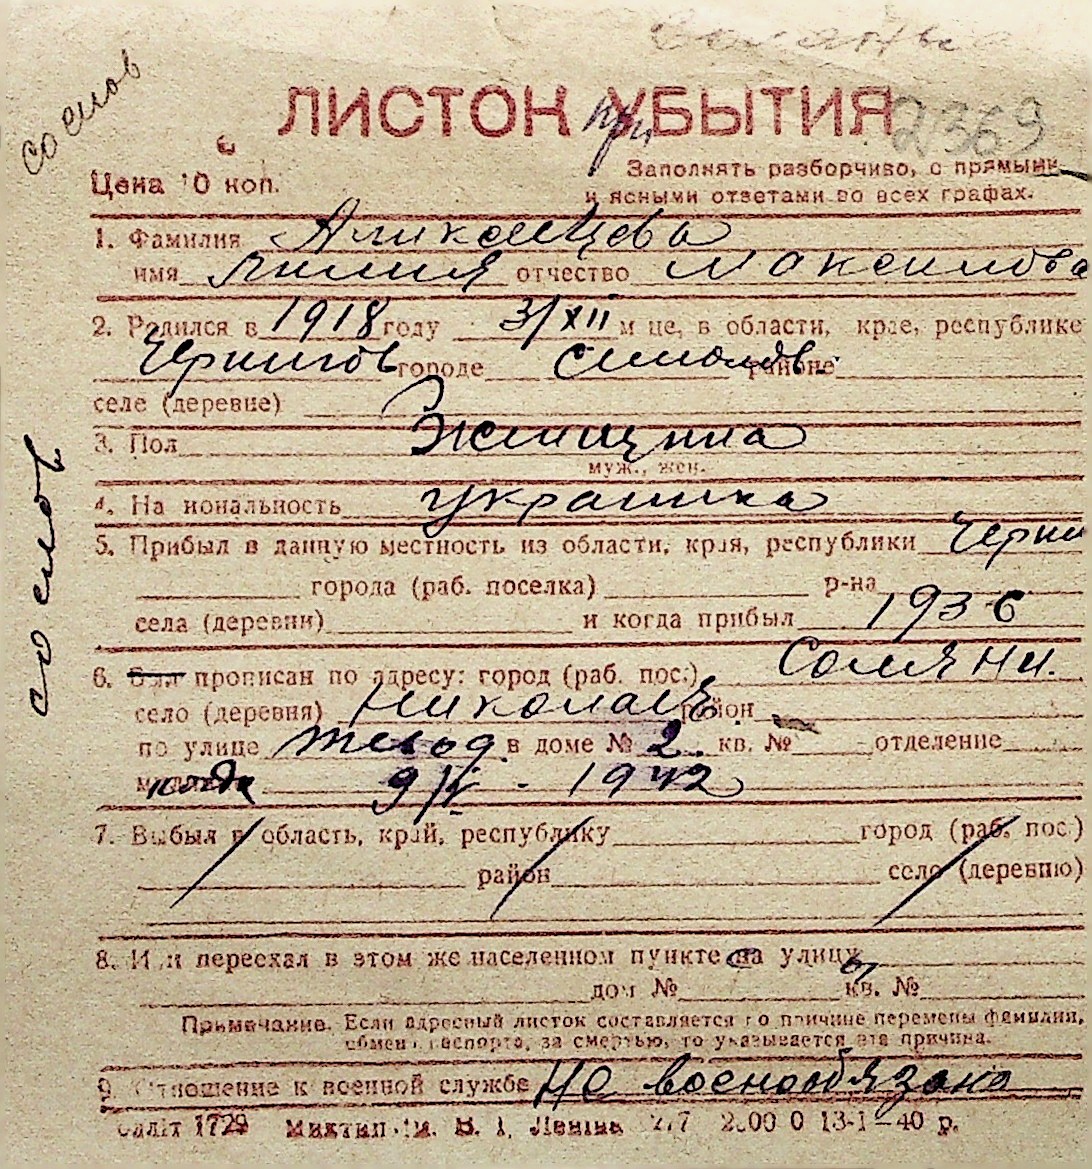 сослов
ЛИСТОК при УБЫТИЯ 2369
Цена 10 коп.
Заполнять разборчиво, с прямыми
и ясными ответами во всех графах.
1. Фамилия
имя Лилия отчество Максимовна
2. Родился в 1918 году 3/XII м це, в области, крае, республике
Чернигов городе районе
селе (деревне)
3. Пол Женщина
муж., жен.
4. На иональность украинка
5. Прибыл в данную местность из области, края, республики Черни
города (раб. поселка) р-на
села (деревни) и когда прибыл 1936
6. Был прописан по адресу: город (раб. пос.) Соляни.
село (деревня) Николаев район
по улице в доме № 2 кв. № отделение
когда 9/V - 1942
7. Выбыл в область, край, республику город (раб. пос.)
район село (деревню)
8. Или переехал в этом же населенном пункте на улицу
дом № кв. №
Примечание. Если адресный листок составляется по причине перемены фамилии,
обмена паспорта, за смертью, то указывается эта причина.
9. Отношение к военной службе не военнообязана
1729 В. І. Леніна 13-1-40 р.